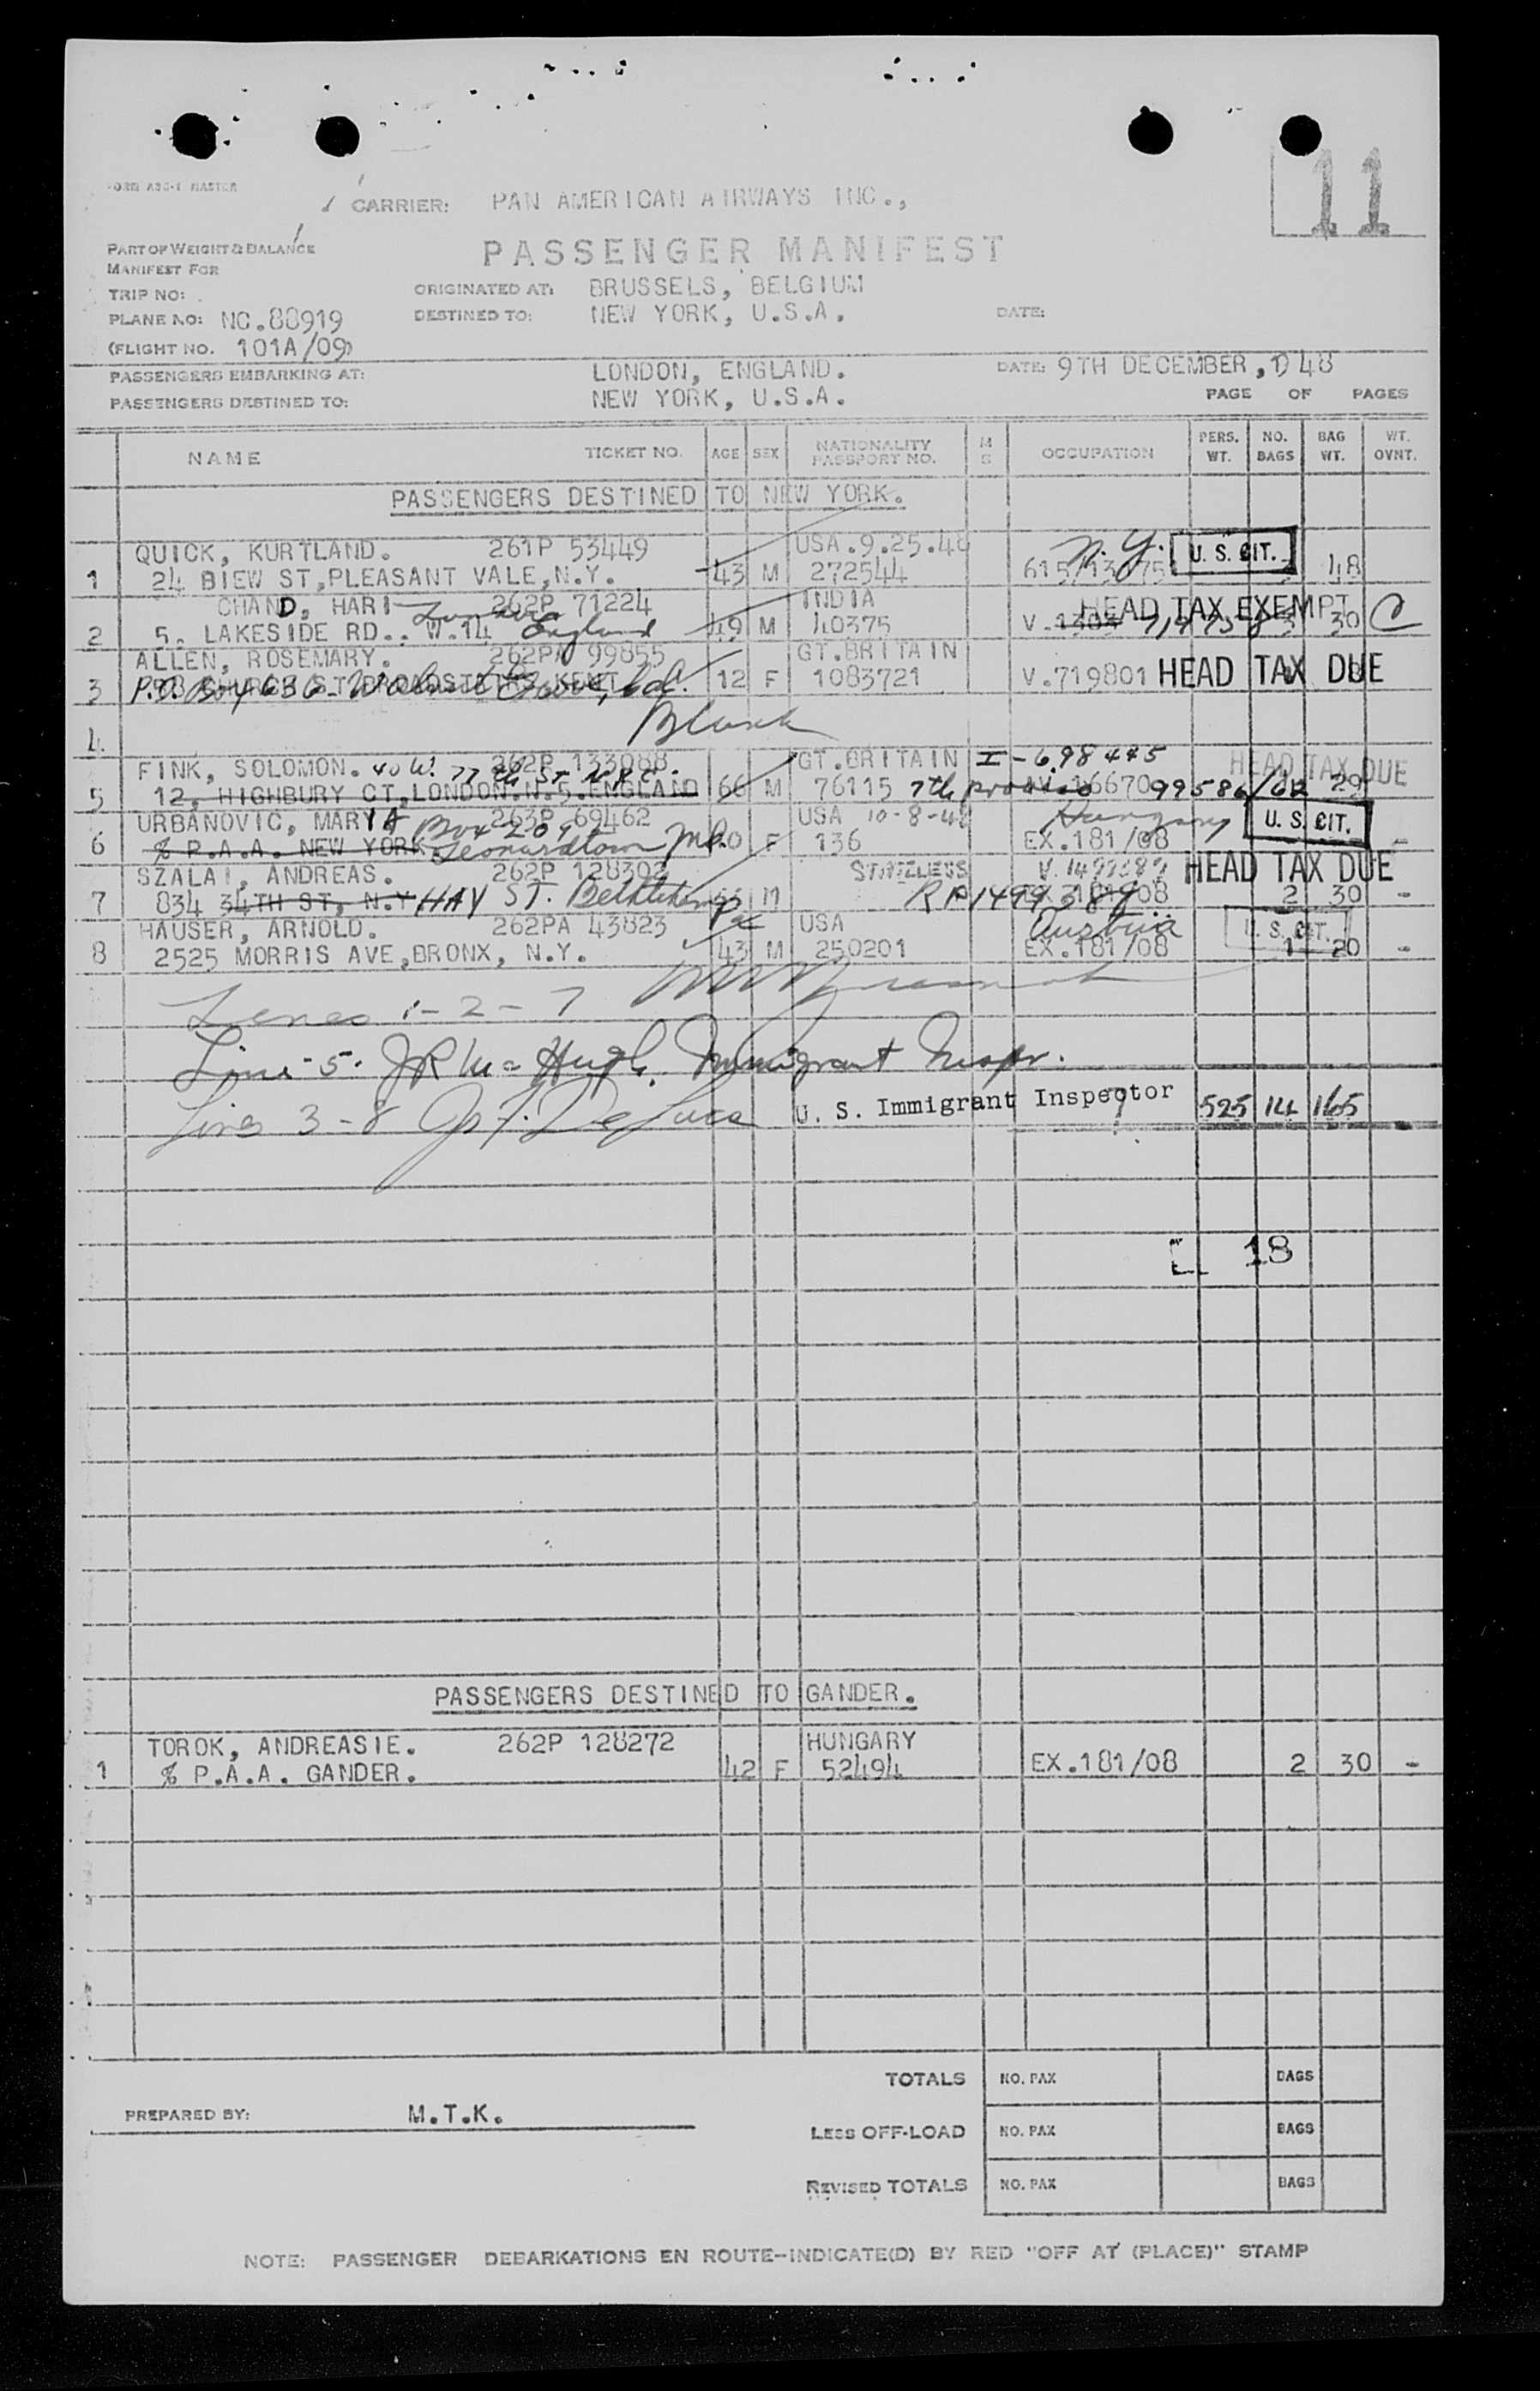 FORM ASC-1 MASTER
11
CARRIER: PAN AMERICAN AIRWAYS INC.,
PASSENGER MANIFEST
PART OF WEIGHT & BALANCE
MANIFEST FOR
TRIP NO:
ORIGINATED AT: BRUSSELS, BELGIUM
PLANE NO: NC.88919
DESTINED TO: NEW YORK, U.S.A. DATE:
(FLIGHT NO. 101A/09)
PASSENGERS EMBARKING AT: LONDON, ENGLAND. DATE: 9TH DECEMBER, 1948
PASSENGERS DESTINED TO: NEW YORK, U.S.A. PAGE OF PAGES
NAME TICKET NO. AGE SEX NATIONALITY PASSPORT NO. M S OCCUPATION PERS. WT. NO. BAGS BAG WT. WT. OVNT.
PASSENGERS DESTINED TO NEW YORK.
QUICK, KURTLAND. 261P 53449 USA.9.25.48 N.Y. U.S. CIT.
1 24 BIEW ST,PLEASANT VALE,N.Y. 43 M 272544 48
CHAND, HARI 262P 71224 INDIA HEAD TAX EXEMPT
2 5. LAKESIDE RD.. W.14 England 49 M 40375 V. 3 30 C
ALLEN, ROSEMARY. 262PA 99855 GT.BRITAIN
3 P.O. Box 636 Walnut Grove, Cal. 12 F 1083721 V.719801 HEAD TAX DUE
4 Blank
FINK, SOLOMON. 40 W. 77th St N.Y.C. 262P 133088 GT.BRITAIN I-698445 HEAD TAX DUE
5 12, HIGHBURY CT,LONDON.N.5.ENGLAND 66 M 76115 7th proviso 29
URBANOVIC, MARYA Box 209 263P 69462 USA 10-8-48 Hungary U.S. CIT.
6 % P.A.A. NEW YORK Leonardtown Md. F 136 EX.181/08 -
SZALAI, ANDREAS. 262P 128302 STATELESS HEAD TAX DUE
7 834 34TH ST, N.Y HAY ST. Bethlehem Pa M 2 30 -
HAUSER, ARNOLD. 262PA 43823 USA Austria U.S. CIT.
8 2525 MORRIS AVE,BRONX, N.Y. 43 M 250201 EX.181/08 1 20 -
Lines 1-2-7
Line-5. JR McHugh, Immigrant Inspr.
Lines 3-8 De Luca U. S. Immigrant Inspector 525 14 165
18
PASSENGERS DESTINED TO GANDER.
TOROK, ANDREASIE. 262P 128272 HUNGARY
1 % P.A.A. GANDER. 42 F 52494 EX.181/08 2 30 -
TOTALS NO. PAX BAGS
PREPARED BY: M.T.K.
LESS OFF-LOAD NO. PAX BAGS
REVISED TOTALS NO. PAX BAGS
NOTE: PASSENGER DEBARKATIONS EN ROUTE-INDICATE(D) BY RED "OFF AT (PLACE)" STAMP